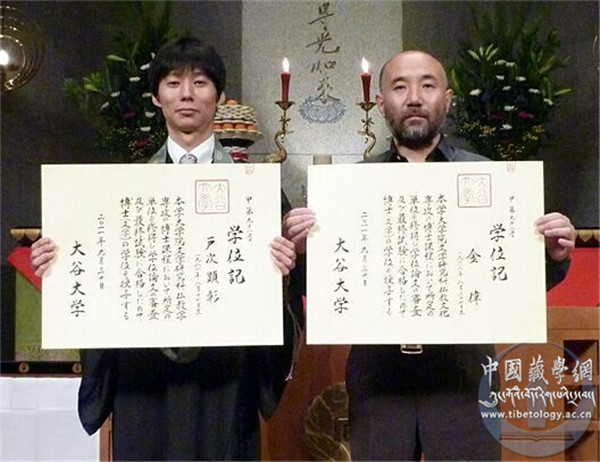 学位記
戸次顕彰
本学大学院文学研究科仏教学
専攻の博士課程において所定の
単位を修得し学位論文の審査
及び最終試験に合格したので
博士(文学)の学位を授与する
二〇一一年九月三十日
大谷大学
学位記
金偉
本学大学院文学研究科仏教文化
専攻の博士課程において所定の
単位を修得し学位論文の審査
及び最終試験に合格したので
博士(文学)の学位を授与する
二〇一一年九月三十日
大谷大学
中國藏學網
www.tibetology.ac.cn